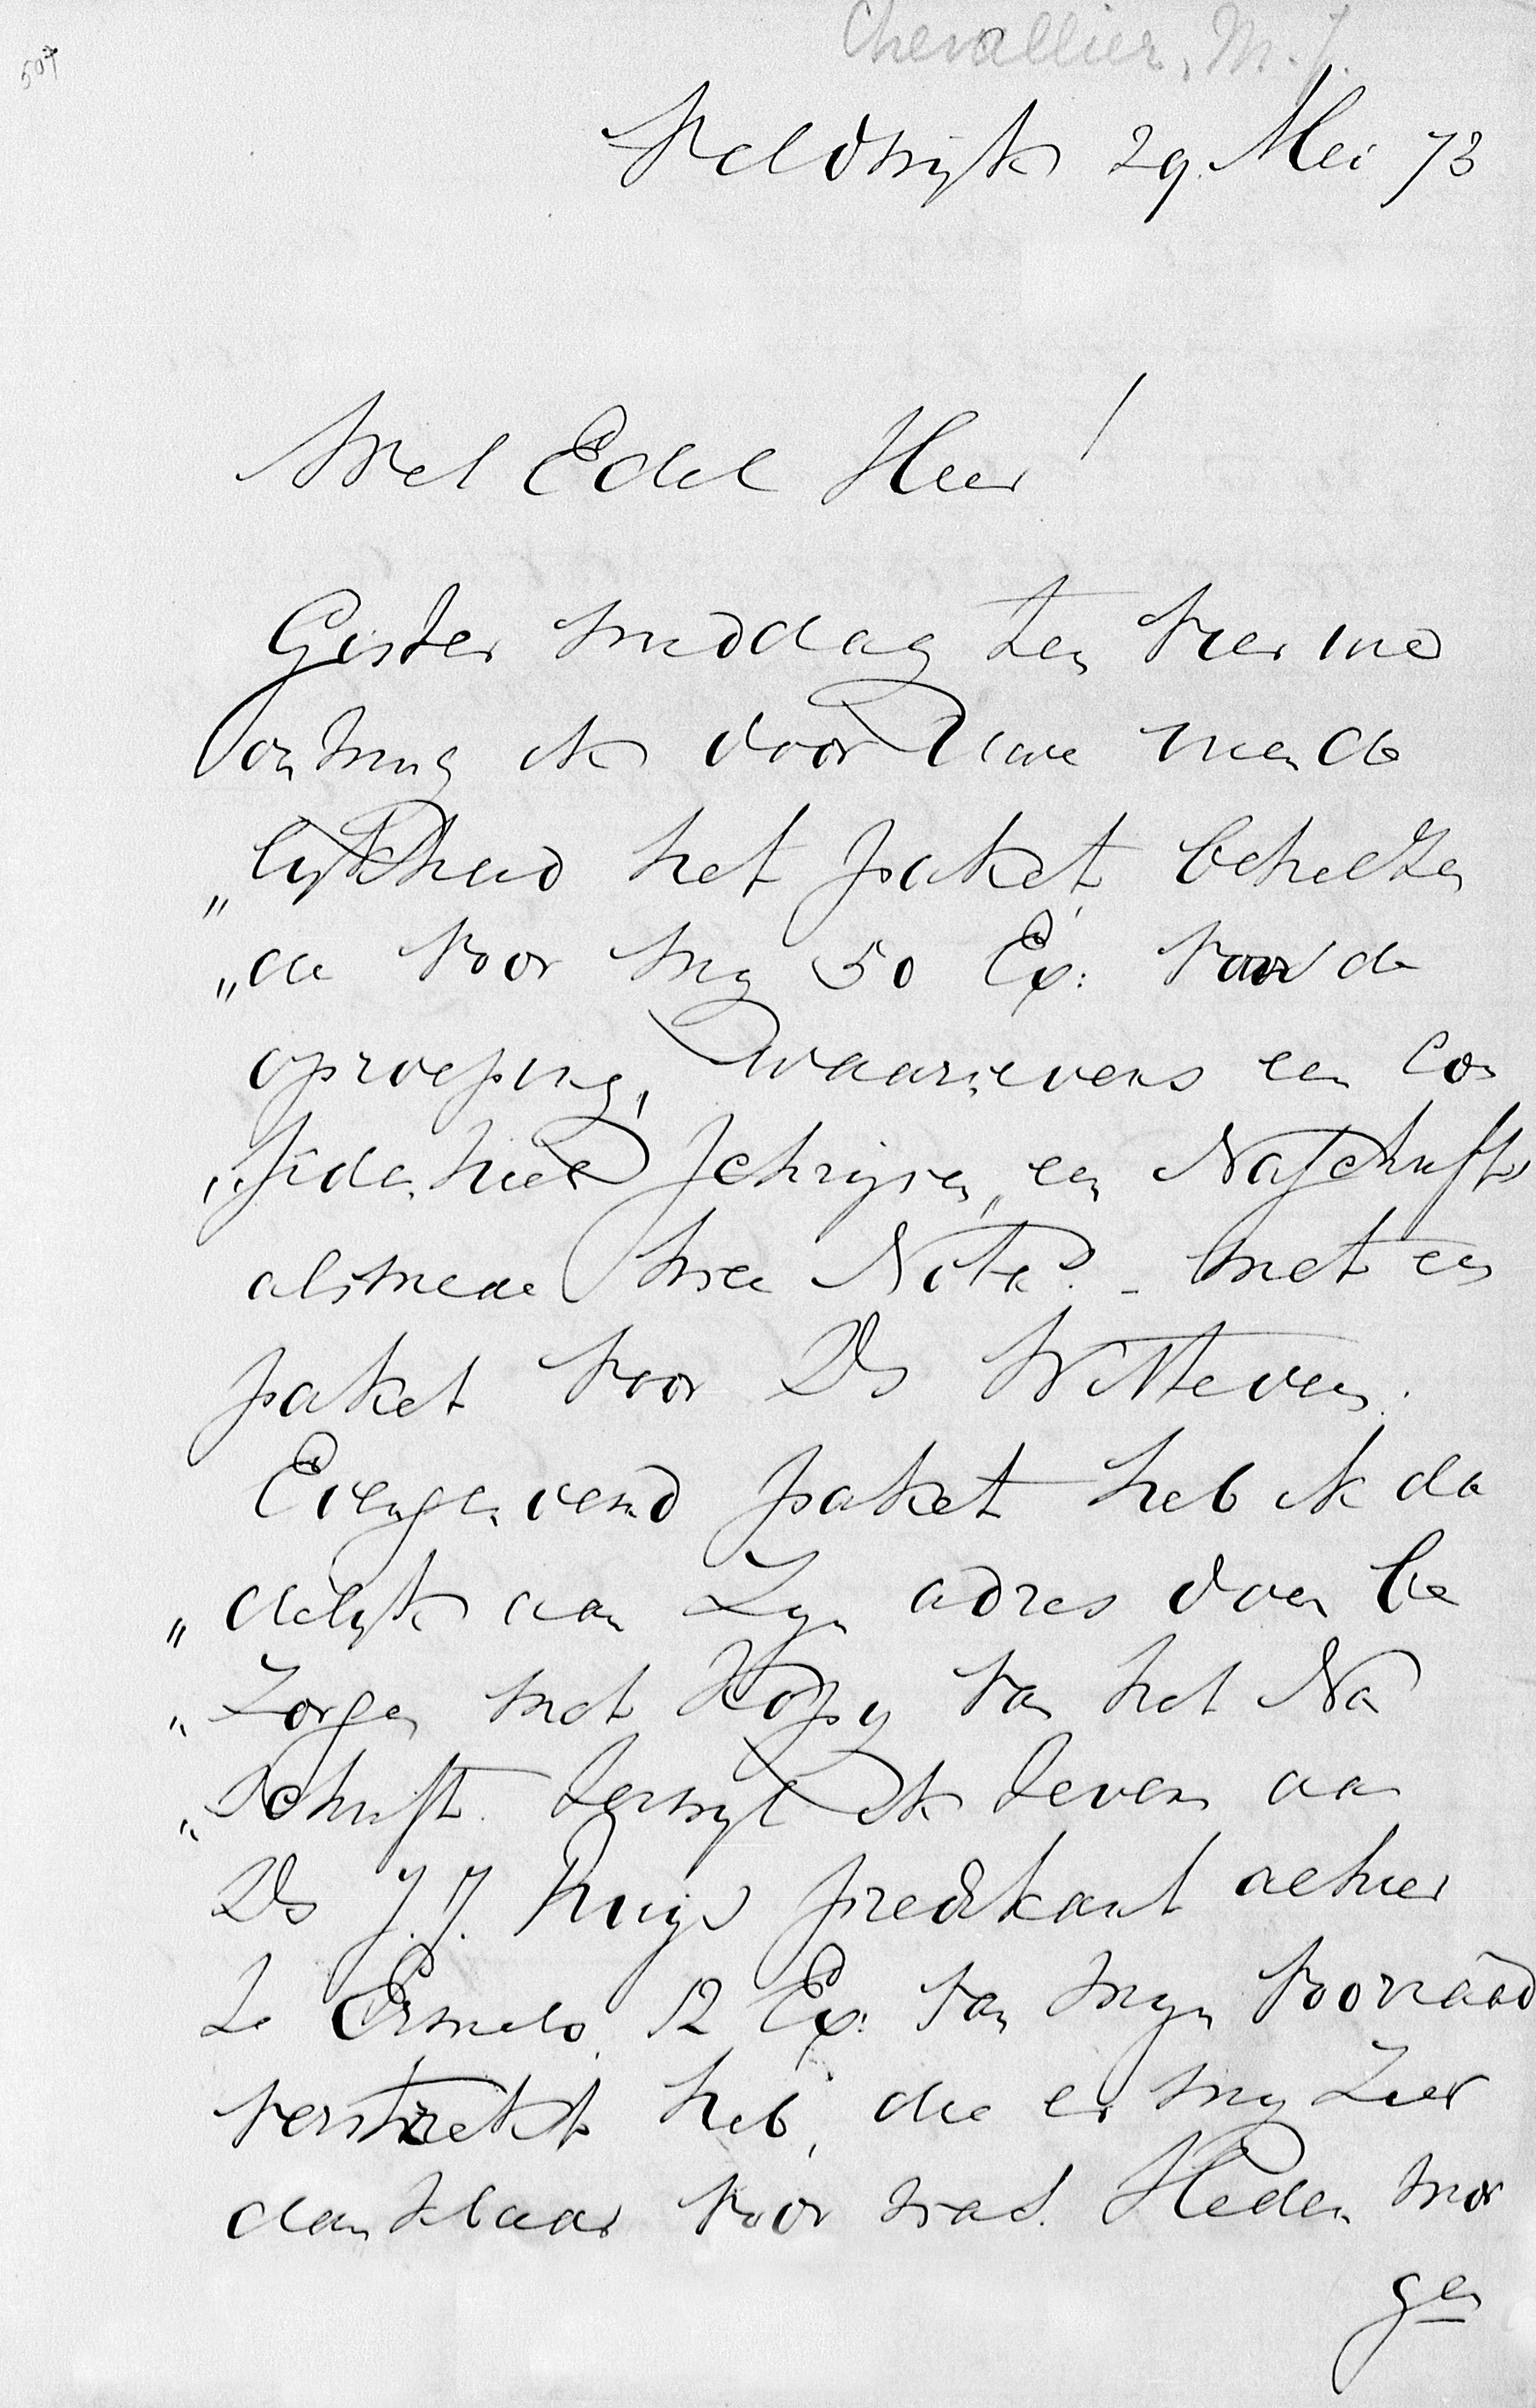 507
Chevallier, M. J.
Veldwijk 29. Mei 73
Wel Edel Heer!
Gister middag ten vier ure
ontving ik door Uwe vriende
„lijkheid het paket, behelzen
„de voor mij 50 Ex: van de
oproeping, waarnevens een con
„fidentieel schrijven, en Naschrift
alsmede twee Nota's - met een
paket voor Ds Witteveen.
Evengenoemd paket heb ik da
„delijk aan zijn adres doen be
„zorgen met Kopy van het Na
„schrift. terwijl ik tevens aan
Ds J. J. Knijs predikant alhier
te Ermelo, 12 Ex: van mijn voorraad
verstrekt heb, die er mij zeer
dankbaar voor was. Heden mor
gen